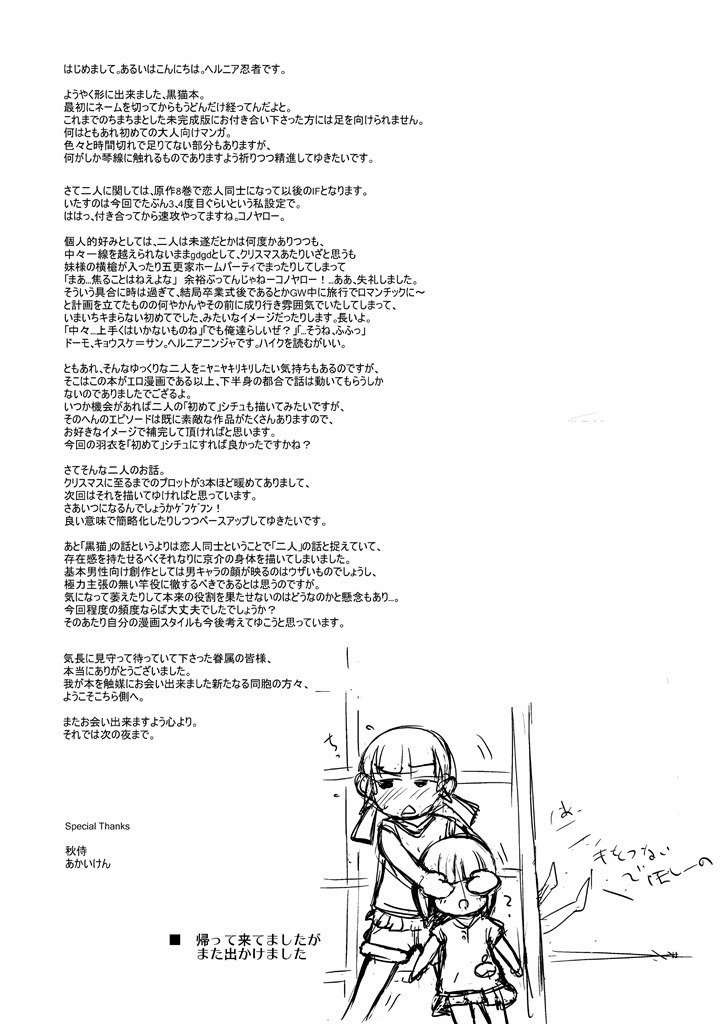 はじめまして。あるいはこんにちは。ヘルニア忍者です。
ようやく形に出来ました、黒猫本。
最初にネームを切ってからもうどんだけ経ってんだよと。
これまでのちまちまとした未完成版にお付き合い下さった方には足を向けられません。
何はともあれ初めての大人向けマンガ。
色々と時間切れで足りてない部分もありますが、
何がしか琴線に触れるものでありますよう祈りつつ精進してゆきたいです。
さて二人に関しては、原作8巻で恋人同士になって以後のIFとなります。
いたすのは今回でたぶん3、4度目ぐらいという私設定で。
ははっ、付き合ってから速攻やってますね。コノヤロー。
個人的好みとしては、二人は未遂だとかは何度かありつつも、
中々一線を越えられないままgdgdとして、クリスマスあたりいざと思うも
妹様の横槍が入ったり五更家ホームパーティでまったりしてしまって
「まあ…焦ることはねえよな」 余裕ぶってんじゃねーコノヤロー！…ああ、失礼しました。
そういう具合に時は過ぎて、結局卒業式後であるとかGW中に旅行でロマンチックに～
と計画を立てたものの何やかんやその前に成り行き雰囲気でいたしてしまって、
いまいちキまらない初めてでした、みたいなイメージだったりします。長いよ。
「中々…上手くはいかないものね」「でも俺達らしいぜ？」「…そうね、ふふっ」
ドーモ、キョウスケ＝サン。ヘルニアニンジャです。ハイクを読むがいい。
ともあれ、そんなゆっくりな二人をﾆﾔﾆﾔｷﾘｷﾘしたい気持ちもあるのですが、
そこはこの本がエロ漫画である以上、下半身の都合で話は動いてもらうしか
ないのでありましたでござるよ。
いつか機会があれば二人の「初めて」シチュも描いてみたいですが、
そのへんのエピソードは既に素敵な作品がたくさんありますので、
お好きなイメージで補完して頂ければと思います。
今回の羽衣を「初めて」シチュにすれば良かったですかね？
さてそんな二人のお話。
クリスマスに至るまでのプロットが3本ほど暖めてありまして、
次回はそれを描いてゆければと思っています。
さあいつになるんでしょうかｹﾞﾌｹﾞﾌﾝ！
良い意味で簡略化したりしつつペースアップしてゆきたいです。
あと「黒猫」の話というよりは恋人同士ということで「二人」の話と捉えていて、
存在感を持たせるべくそれなりに京介の身体を描いてしまいました。
基本男性向け創作としては男キャラの顔が映るのはウザいものでしょうし、
極力主張の無い竿役に徹するべきであるとは思うのですが。
気になって萎えたりして本来の役割を果たせないのはどうなのかと懸念もあり…。
今回程度の頻度ならば大丈夫でしたでしょうか？
そのあたり自分の漫画スタイルも今後考えてゆこうと思っています。
気長に見守って待っていて下さった眷属の皆様、
本当にありがとうございました。
我が本を触媒にお会い出来ました新たなる同胞の方々、
ようこそこちら側へ。
またお会い出来ますよう心より。
それでは次の夜まで。
Special Thanks
秋侍
あかいけん
■ 帰って来てましたが
また出かけました
ちっ